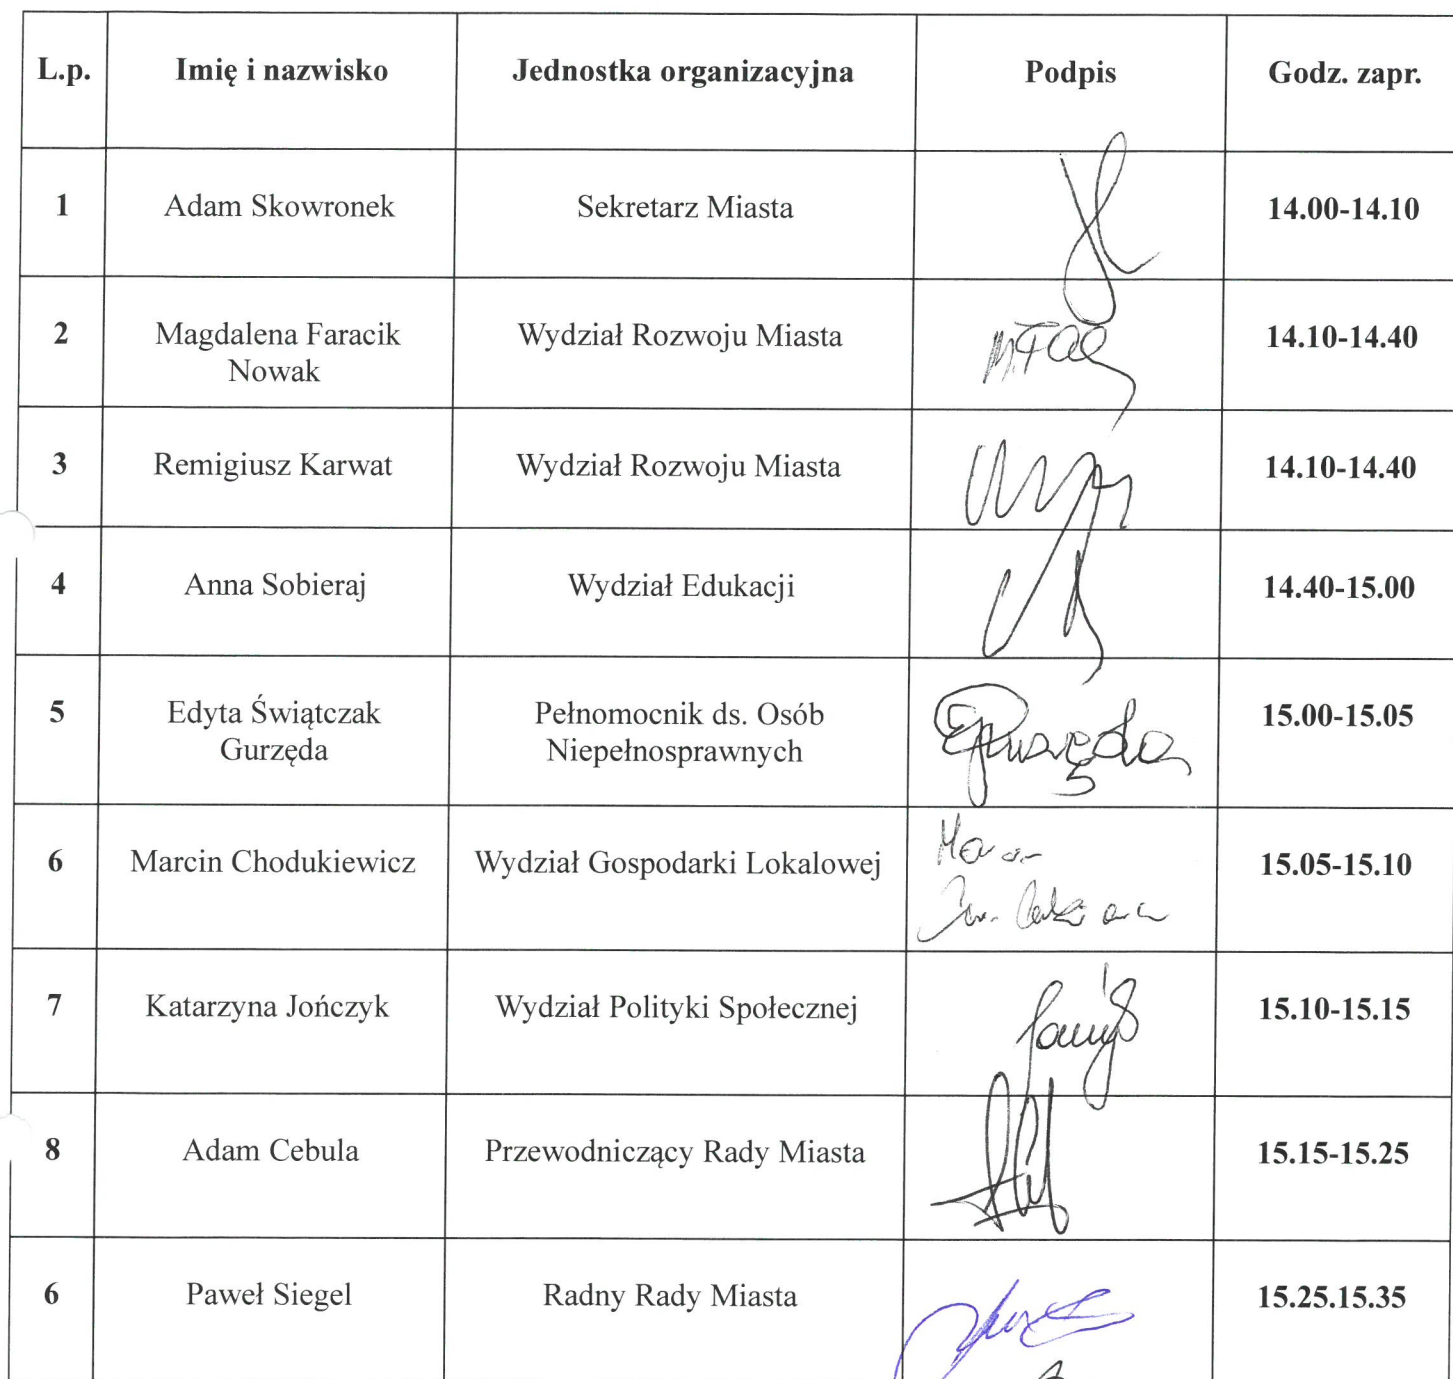 L.p. Imię i nazwisko Jednostka organizacyjna Podpis Godz. zapr.
1 Adam Skowronek Sekretarz Miasta 14.00-14.10
2 Magdalena Faracik Wydział Rozwoju Miasta 14.10-14.40
Nowak
3 Remigiusz Karwat Wydział Rozwoju Miasta 14.10-14.40
4 Anna Sobieraj Wydział Edukacji 14.40-15.00
5 Edyta Świątczak Pełnomocnik ds. Osób 15.00-15.05
Gurzęda Niepełnosprawnych
6 Marcin Chodukiewicz Wydział Gospodarki Lokalowej 15.05-15.10
7 Katarzyna Jończyk Wydział Polityki Społecznej 15.10-15.15
8 Adam Cebula Przewodniczący Rady Miasta 15.15-15.25
6 Paweł Siegel Radny Rady Miasta 15.25.15.35